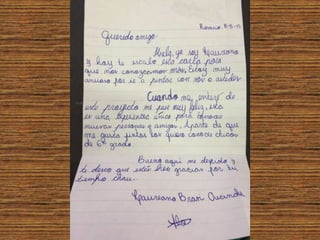 Querido amigo:
Hola, yo soy Laureano
y hoy te escribo esta carta para
que nos conozcamos más. Estoy muy
ansioso por ir a pintar con vos o ustedes
Cuando me entere de
este proyecto me puse muy feliz, esta
es una experiencia única para conocer
nuevas personas y amigos. Aparte de que
me gusta pintar los quiero conocer chicos
de 6º grado
Bueno aquí me despido y
te deseo que estés bien gracias por su
tiempo chau...
Laureano